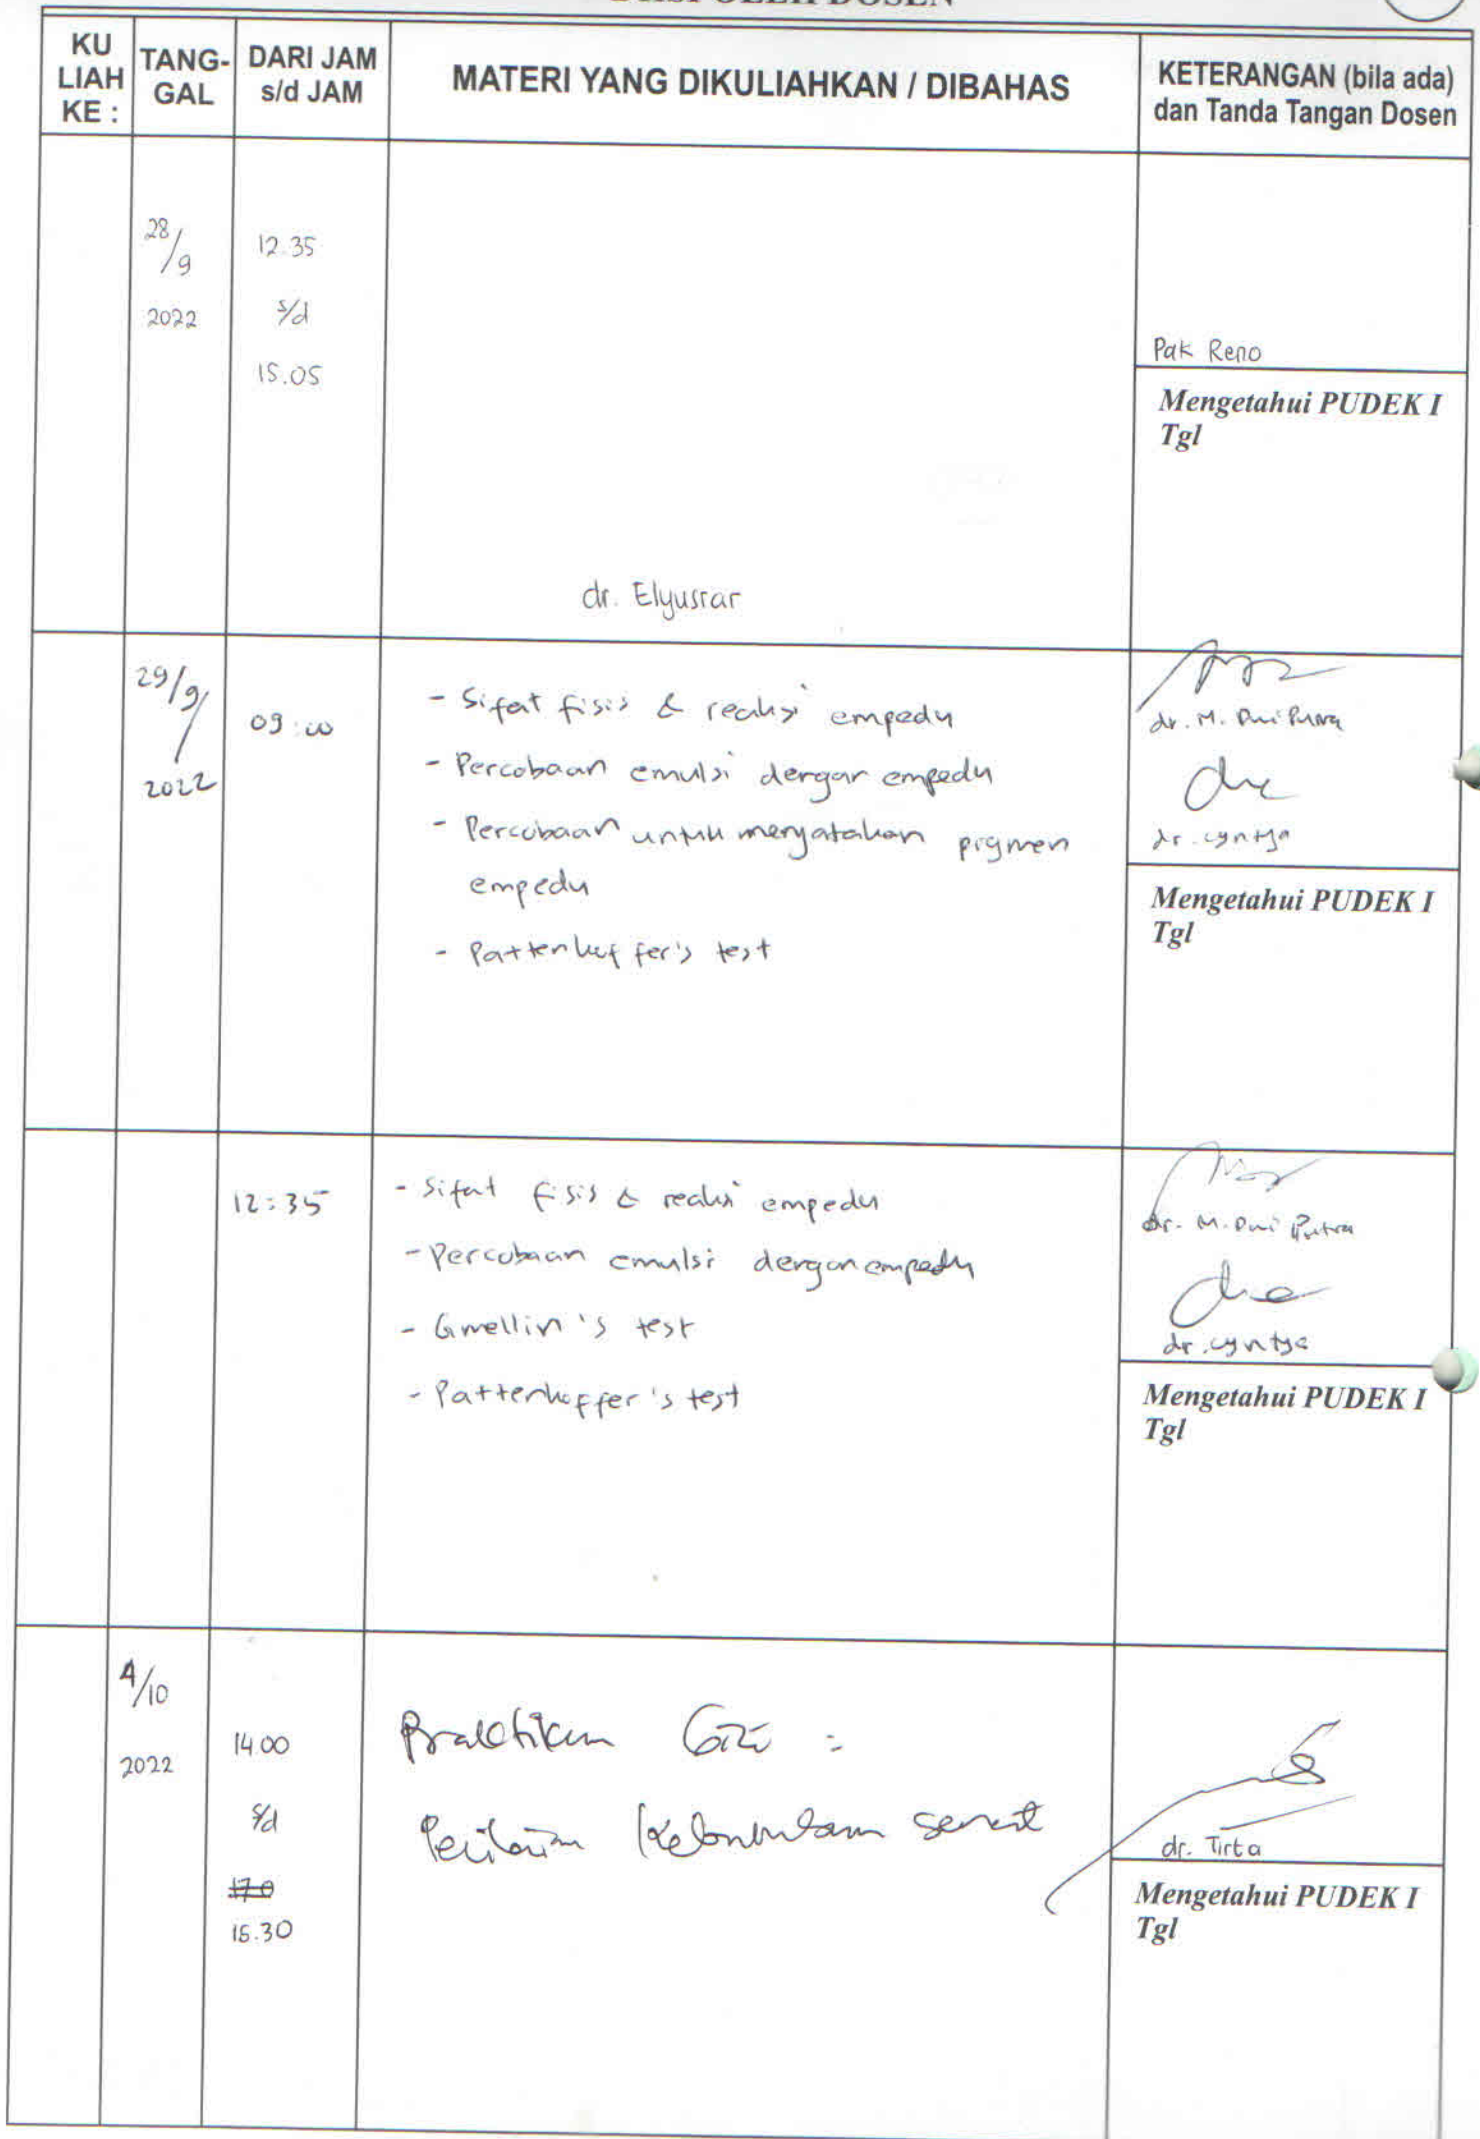 KU LIAH KE :
TANG-GAL
DARI JAM s/d JAM
MATERI YANG DIKULIAHKAN / DIBAHAS
KETERANGAN (bila ada) dan Tanda Tangan Dosen
28/9
2022
12.35
s/d
15.05
dr. Elyusrar
Pak Reno
Mengetahui PUDEK I
Tgl
29/9/
2022
09:00
- Sifat fisis & reaksi empedu
- Percobaan emulsi dengan empedu
- Percobaan untuk menyatakan pigmen
empedu
- Pattenhoffer's test
dr. M. Dwi Putra
dr. cyntya
Mengetahui PUDEK I
Tgl
12:35
- Sifat fisis & reaksi empedu
- Percobaan emulsi dengan empedu
- Gmellin's test
- Pattenhoffer's test
dr. M. Dwi Putra
dr. cyntya
Mengetahui PUDEK I
Tgl
4/10
2022
14.00
s/d
17.0
15.30
Praktikum Gizi :
serat
dr. Tirta
Mengetahui PUDEK I
Tgl